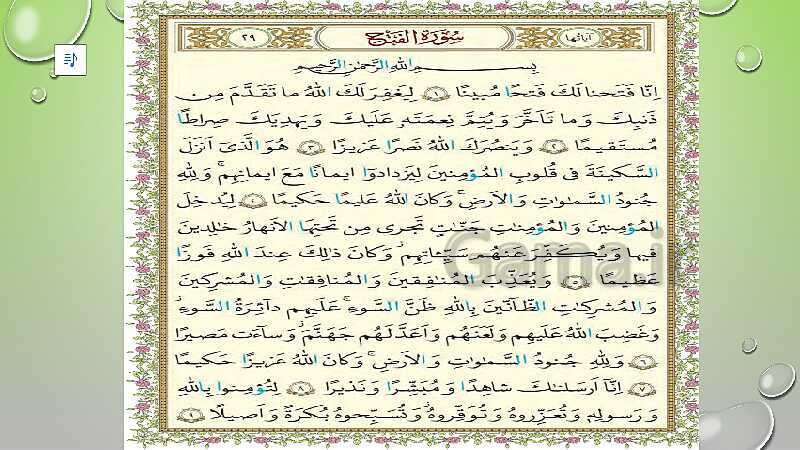 آیاتها سُورَةُ الفَتحِ ٢٩
بِسمِ اللهِ الرَّحمٰنِ الرَّحیمِ
اِنّا فَتَحنا لَكَ فَتحًا مُبینًا ﴿١﴾ لِیَغفِرَ لَكَ اللهُ ما تَقَدَّمَ مِن
ذَنبِكَ وَ ما تَاَخَّرَ وَ یُتِمَّ نِعمَتَهٗ عَلَیكَ وَ یَهدِیَكَ صِراطًا
مُستَقیمًا ﴿٢﴾ وَ یَنصُرَكَ اللهُ نَصرًا عَزیزًا ﴿٣﴾ هُوَ الَّذی اَنزَلَ
السَّكینَةَ فی قُلوبِ المُؤمِنینَ لِیَزدادوا ایمانًا مَعَ ایمانِهِم ۗ وَ لِلّٰهِ
جُنودُ السَّماواتِ وَ الاَرضِ ۚ وَ كانَ اللهُ عَلیمًا حَكیمًا ﴿٤﴾ لِیُدخِلَ
المُؤمِنینَ وَ المُؤمِناتِ جَنّاتٍ تَجری مِن تَحتِهَا الاَنهارُ خالِدینَ
فیها وَ یُكَفِّرَ عَنهُم سَیِّئاتِهِم ۚ وَ كانَ ذٰلِكَ عِندَ اللهِ فَوزًا
عَظیمًا ﴿٥﴾ وَ یُعَذِّبَ المُنافِقینَ وَ المُنافِقاتِ وَ المُشرِكینَ
وَ المُشرِكاتِ الظّانّینَ بِاللهِ ظَنَّ السَّوءِ ۚ عَلَیهِم دائِرَةُ السَّوءِ ۖ
وَ غَضِبَ اللهُ عَلَیهِم وَ لَعَنَهُم وَ اَعَدَّ لَهُم جَهَنَّمَ ۖ وَ ساءَت مَصیرًا
﴿٦﴾ وَ لِلّٰهِ جُنودُ السَّماواتِ وَ الاَرضِ ۚ وَ كانَ اللهُ عَزیزًا حَكیمًا
﴿٧﴾ اِنّا اَرسَلناكَ شاهِدًا وَ مُبَشِّرًا وَ نَذیرًا ﴿٨﴾ لِتُؤمِنوا بِاللهِ
وَ رَسولِهٖ وَ تُعَزِّروهُ وَ تُوَقِّروهُ ۚ وَ تُسَبِّحوهُ بُكرَةً وَ اَصیلًا ﴿٩﴾
Gama.ir